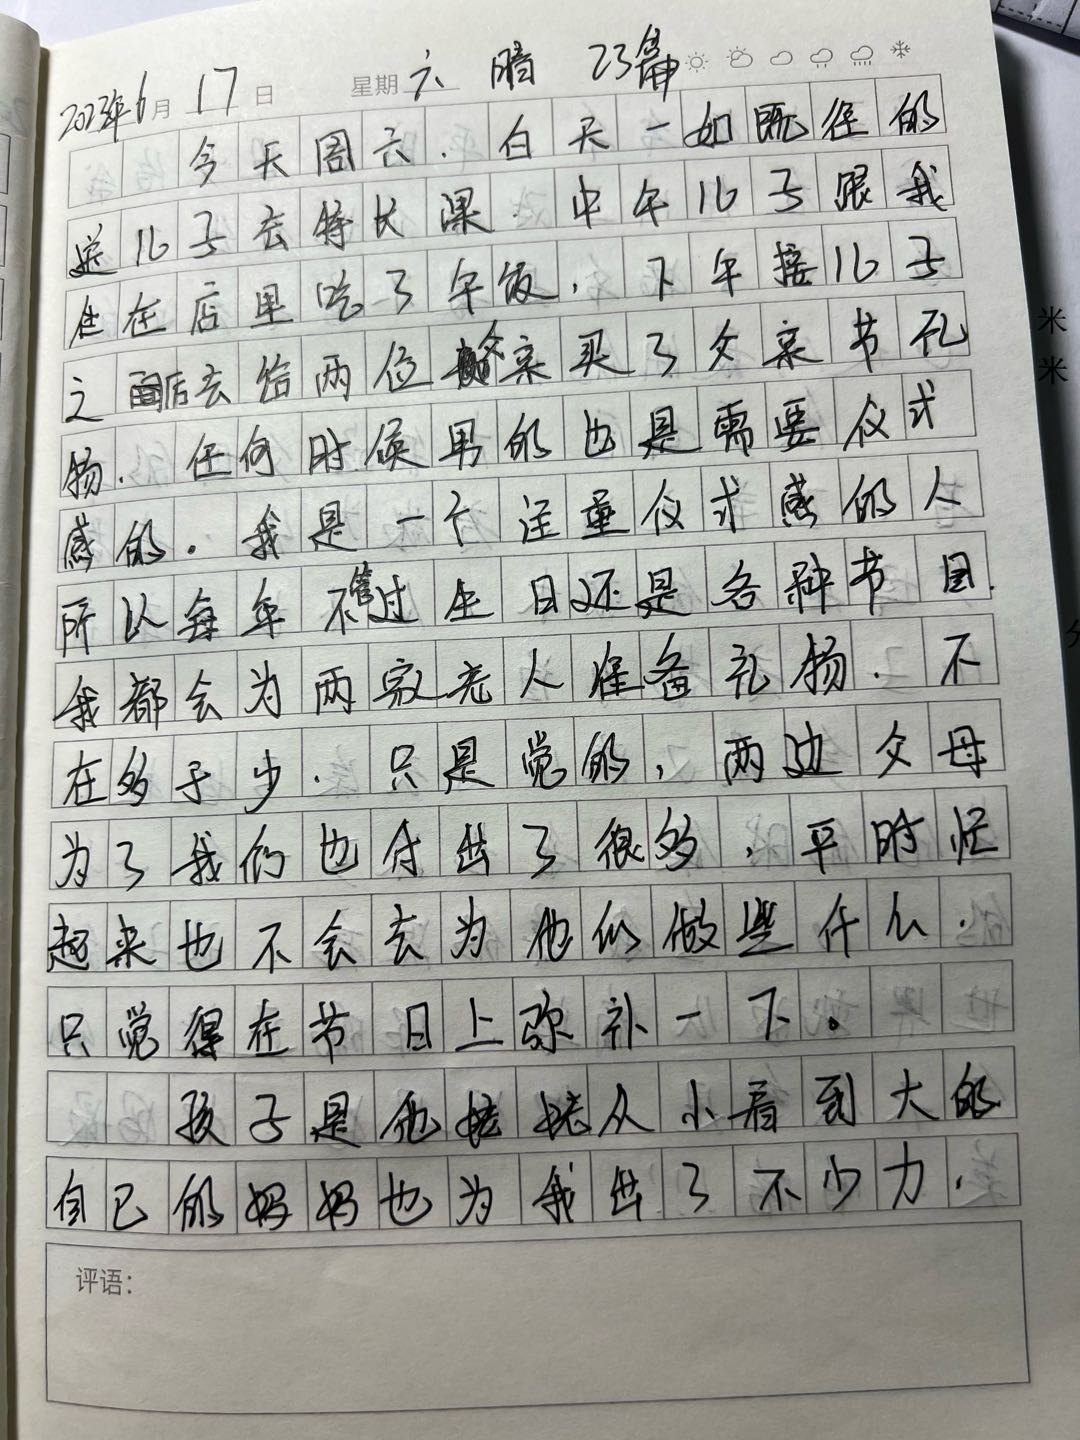 2023年6月17日 星期六 晴 23篇
今天周六.白天一如既往的
送儿子去特长课.中午儿子跟我
在店里吃了午饭,下午接儿子
之后去给两位父亲买了父亲节礼
物.任何时候男的也是需要仪式
感的.我是一个注重仪式感的人
所以每年不管过生日还是各种节日.
我都会为两家老人准备礼物.不
在多于少.只是觉的,两边父母
为了我们也付出了很多,平时忙
起来也不会去为他们做些什么.
只觉得在节日上弥补一下。
孩子是他姥姥从小看到大的
自己的妈妈也为我出了不少力.
评语:
米
米